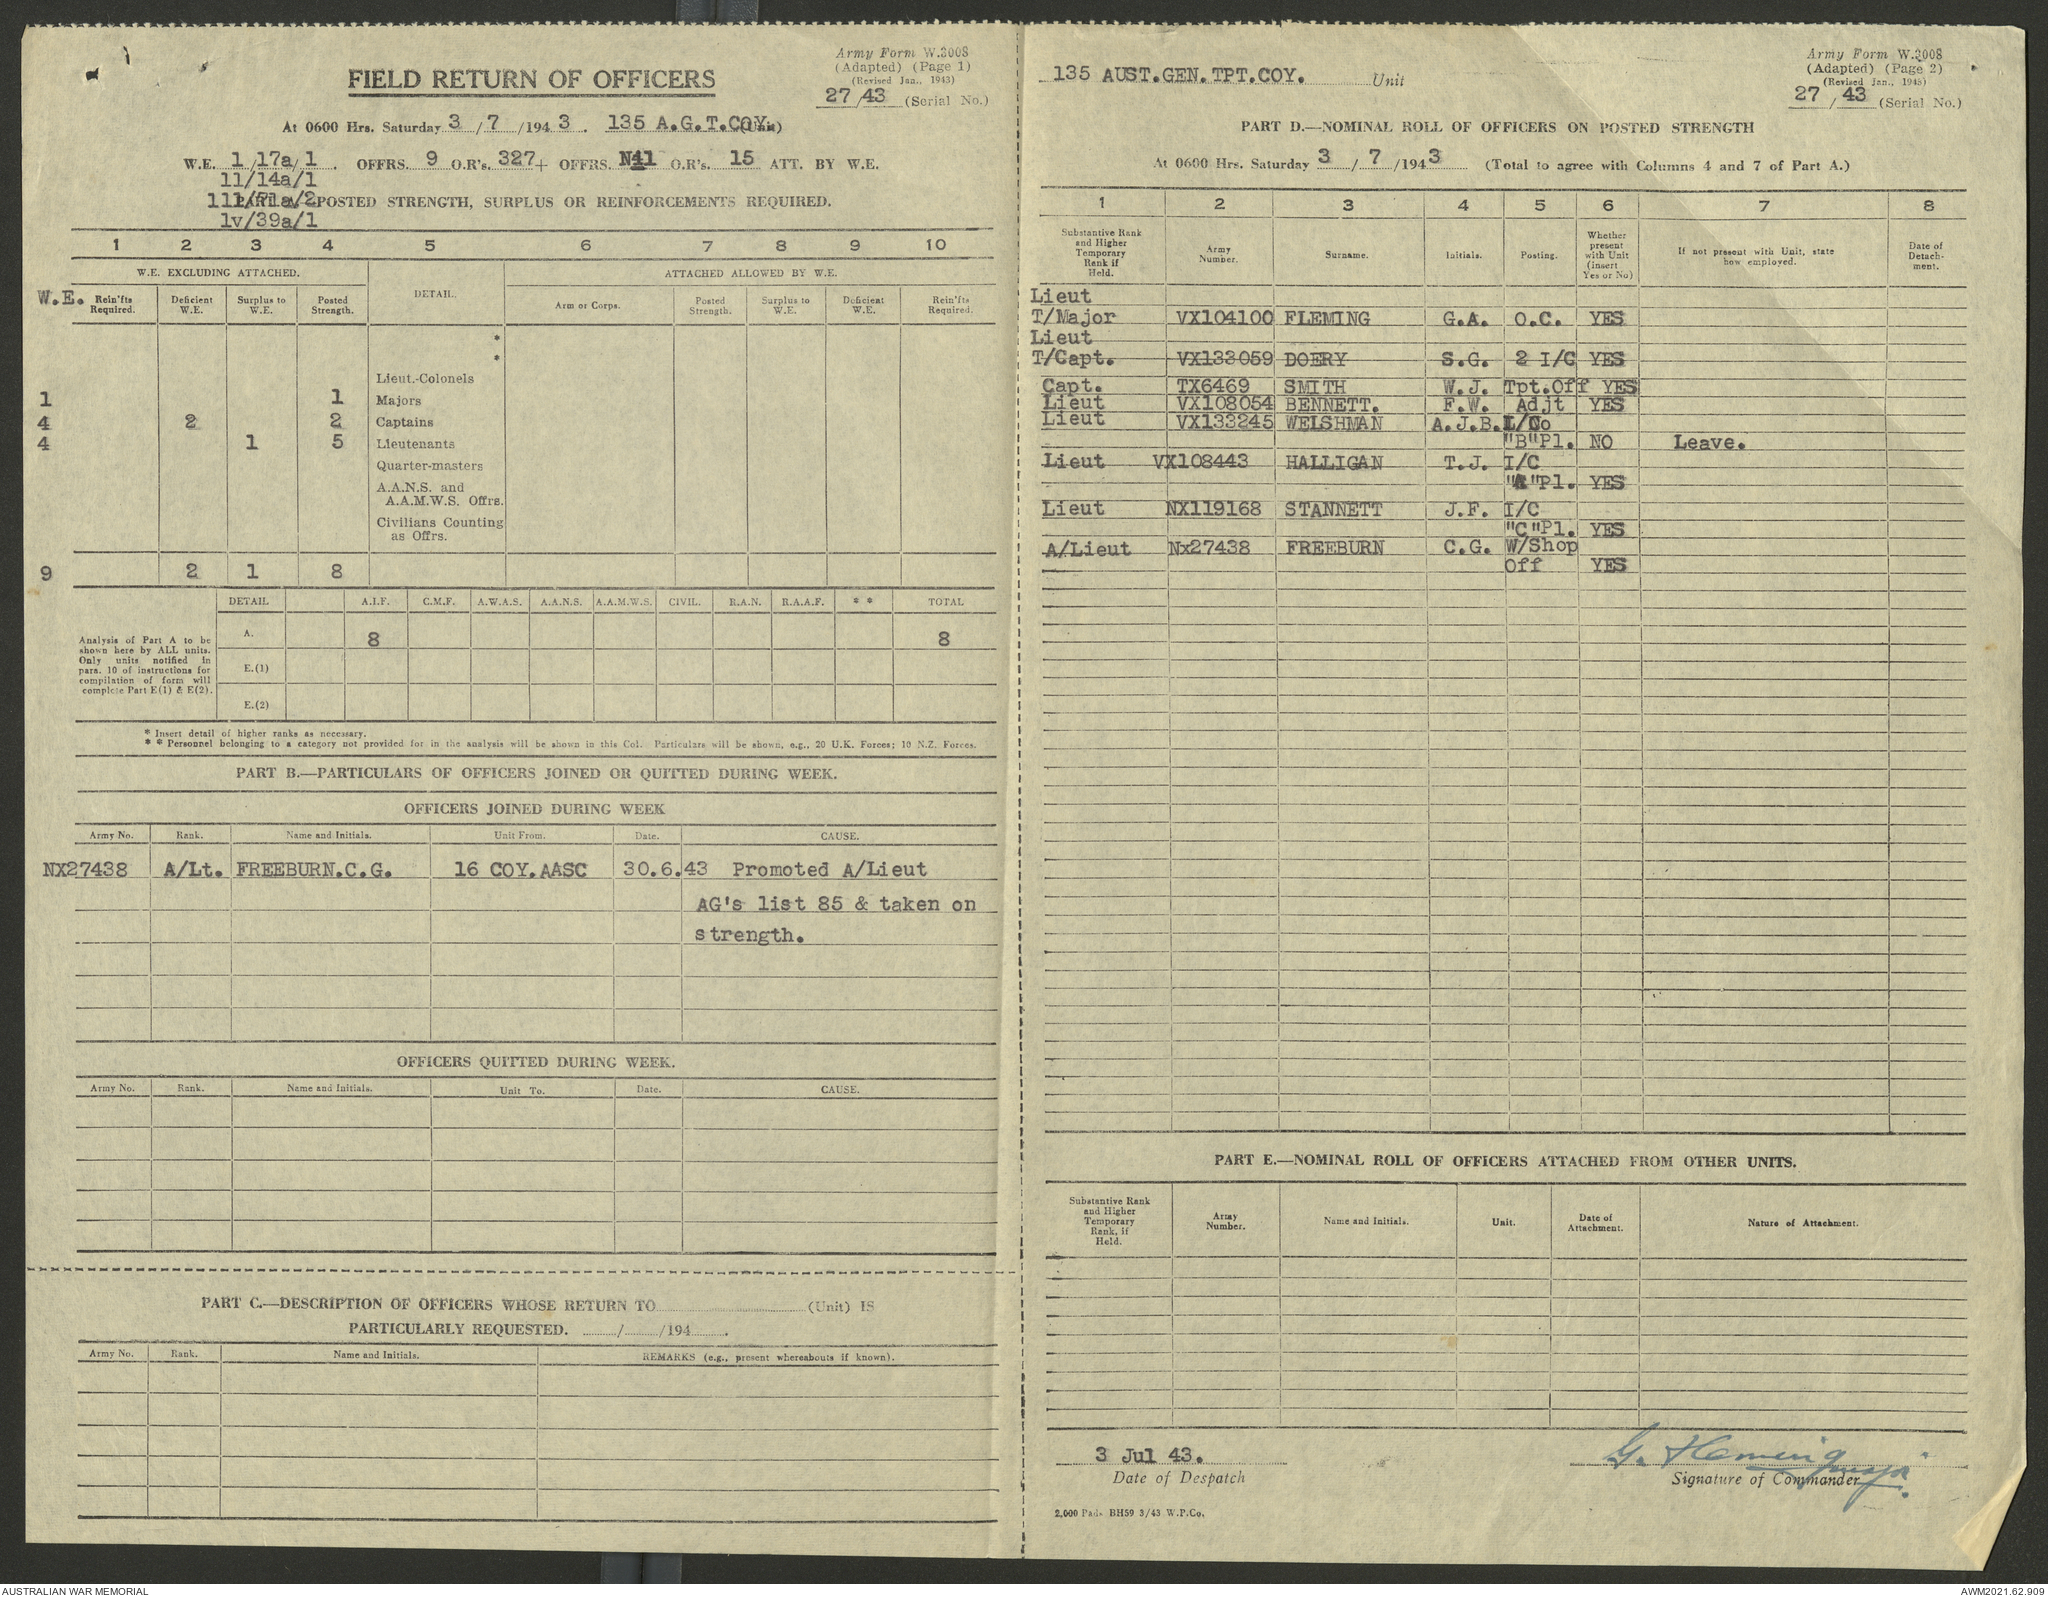 Army Form W.3008
(Adapted) (Page 1)
(Revised Jan., 1943)
27/43 (Serial No.)
FIELD RETURN OF OFFICERS
At 0600 Hrs. Saturday 3/7/1943. 135 A.G.T.COY. (Unit)
W.E. 1/17a/1. OFFRS. 9 O.R's. 327+ OFFRS. O.R's. 15 ATT. BY W.E.
11/14a/1
POSTED STRENGTH, SURPLUS OR REINFORCEMENTS REQUIRED.
1v/39a/1
1 2 3 4 5 6 7 8 9 10
W.E. EXCLUDING ATTACHED. DETAIL. ATTACHED ALLOWED BY W.E.
W.E. Rein'fts Required. Deficient W.E. Surplus to W.E. Posted Strength. Arm or Corps. Posted Strength. Surplus to W.E. Deficient W.E. Rein'fts Required.
*
*
Lieut.-Colonels
1 1 Majors
4 2 2 Captains
4 1 5 Lieutenants
Quarter-masters
A.A.N.S. and
A.A.M.W.S. Offrs.
Civilians Counting
as Offrs.
9 2 1 8
DETAIL A.I.F. C.M.F. A.W.A.S. A.A.N.S. A.A.M.W.S. CIVIL. R.A.N. R.A.A.F. * * TOTAL
Analysis of Part A to be
shown here by ALL units.
Only units notified in
para. 10 of instructions for
compilation of form will
complete Part E(1) & E(2).
A. 8 8
E.(1)
E.(2)
* Insert detail of higher ranks as necessary.
* * Personnel belonging to a category not provided for in the analysis will be shown in this Col. Particulars will be shown, e.g., 20 U.K. Forces; 10 N.Z. Forces.
PART B.—PARTICULARS OF OFFICERS JOINED OR QUITTED DURING WEEK.
OFFICERS JOINED DURING WEEK
Army No. Rank. Name and Initials. Unit From. Date. CAUSE.
NX27438 A/Lt. FREEBURN.C.G. 16 COY.AASC 30.6.43 Promoted A/Lieut
AG's list 85 & taken on
strength.
OFFICERS QUITTED DURING WEEK.
Army No. Rank. Name and Initials. Unit To. Date. CAUSE.
PART C.—DESCRIPTION OF OFFICERS WHOSE RETURN TO (Unit) IS
PARTICULARLY REQUESTED. / /194 .
Army No. Rank. Name and Initials. REMARKS (e.g., present whereabouts if known).
135 AUST.GEN.TPT.COY. Unit
Army Form W.3008
(Adapted) (Page 2)
(Revised Jan., 1943)
27/43 (Serial No.)
PART D.—NOMINAL ROLL OF OFFICERS ON POSTED STRENGTH
At 0600 Hrs. Saturday 3/7/1943 (Total to agree with Columns 4 and 7 of Part A.)
1 2 3 4 5 6 7 8
Substantive Rank and Higher Temporary Rank if Held. Army Number. Surname. Initials. Posting. Whether present with Unit (insert Yes or No) If not present with Unit, state how employed. Date of Detach-ment.
Lieut
T/Major VX104100 FLEMING G.A. O.C. YES
Lieut
T/Capt. VX133059 DOERY S.G. 2 I/C YES
Capt. TX6469 SMITH W.J. Tpt.Off YES
Lieut VX108054 BENNETT. F.W. Adjt YES
Lieut VX133245 WELSHMAN A.J.B.
"B"Pl. NO Leave.
Lieut VX108443 HALLIGAN T.J. I/C
"A"Pl. YES
Lieut NX119168 STANNETT J.F. I/C
"C"Pl. YES
A/Lieut Nx27438 FREEBURN C.G. W/Shop
Off YES
PART E.—NOMINAL ROLL OF OFFICERS ATTACHED FROM OTHER UNITS.
Substantive Rank and Higher Temporary Rank, if Held. Army Number. Name and Initials. Unit. Date of Attachment. Nature of Attachment.
3 Jul 43.
Date of Despatch
G. Fleming Major.
Signature of Commander
2,000 Pads BH59 3/43 W.P.Co.
AUSTRALIAN WAR MEMORIAL
AWM2021.62.909